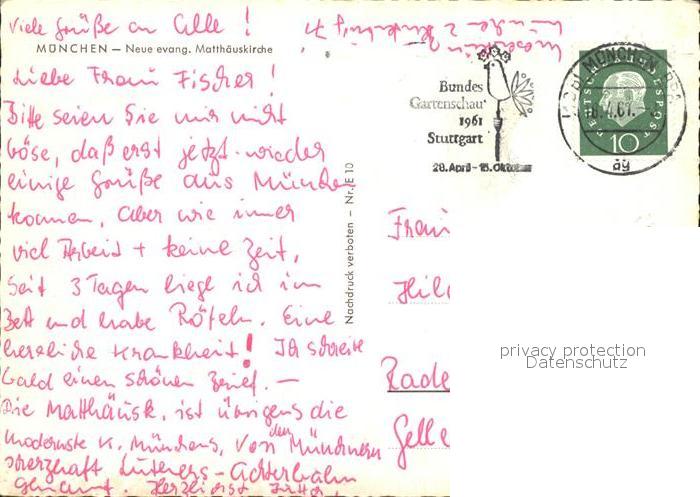 Viele Grüße an Alle!
MÜNCHEN — Neue evang. Matthäuskirche
Liebe Frau Fischer!
Bitte seien Sie mir nicht
böse, daß erst jetzt wieder
einige Grüße aus München
kommen. Aber wie immer
viel Arbeit + keine Zeit.
Seit 3 Tagen liege ich im
Bett und habe Röteln. Eine
herrliche Krankheit! Ich schreibe
bald einen schönen Brief. —
Die Matthäusk. ist übrigens die
modernste K. Münchens, von den Münchnern
scherzhaft Luthers-Achterbahn
genannt. Herzlichst
Nachdruck verboten — Nr. E 10
München 2
Bundes
Gartenschau
1961
Stuttgart
28. April - 15. Oktober
MÜNCHEN
.4.61.
ag
DEUTSCHE BUNDESPOST
10
Frau
Hil
Rade
Gelle
privacy protection
Datenschutz